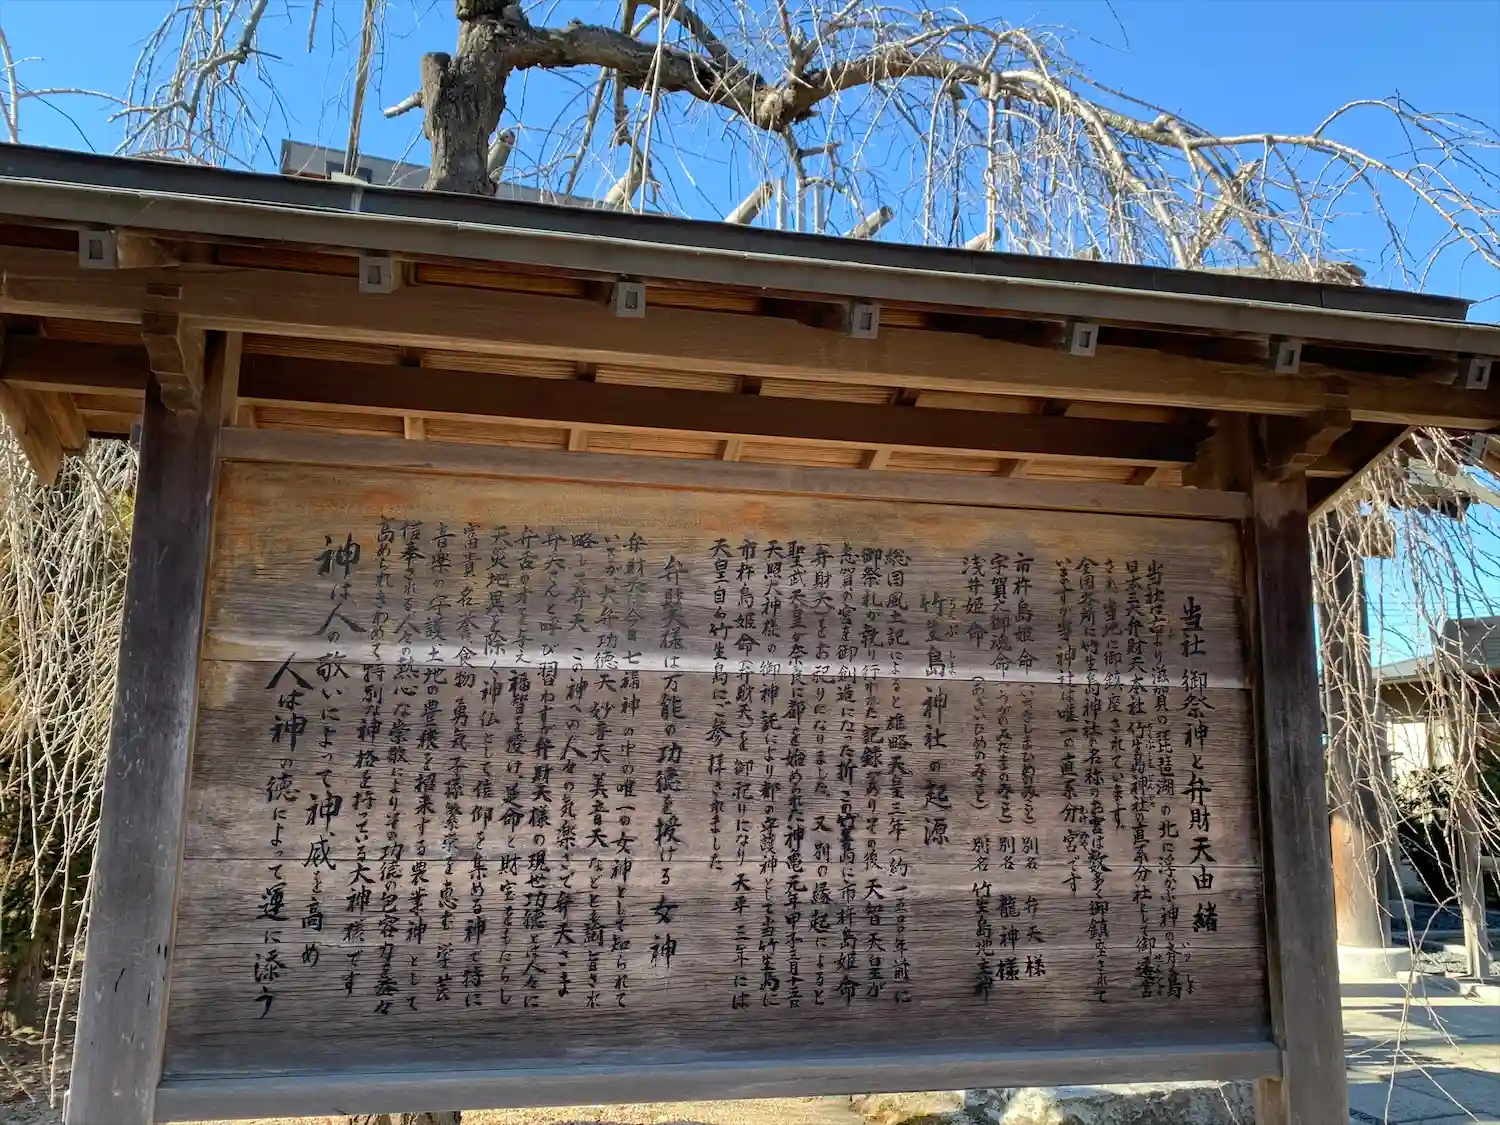 当社 御祭神と弁財天由緒
当社は古より滋賀県の琵琶湖の北に浮かぶ神の斉く島
日本三大弁財天本社 竹生島神社の直系分社として御遷宮
され 当地に御鎮座されています。
全国各所に竹生島神社の名称のお宮は数多く御鎮座されて
いますが当神社は唯一の直系分宮です
市杵島姫命（いちきしまひめのみこと） 別名 弁天様
宇賀之御魂命（うがのみたまのみこと） 別名 龍神様
浅井姫命（あざいひめのみこと） 別名 竹生島地主神
竹生島神社の起源
総国風土記によると雄略天皇三年（約一五〇〇年前）に
御祭礼が執り行われた記録がありその後天智天皇が
志賀の宮を御創造になった折 この竹生島に市杵島姫命
（弁財天）をお祀りになりました。又 別の縁起によると
聖武天皇が奈良に都を始められた神亀元年甲子三月十五日
天照大神様の御神託により都の守護神として当竹生島に
市杵島姫命（弁財天）を御祀りになり天平三年には
天皇自ら竹生島にご参拝されました
弁財天様は万能の功徳を授ける女神
弁財天は今日七福神の中の唯一の女神として知られて
いるが 大弁功徳天 妙音天 美音天などとも論旨され
略して弁天 この神への人々の気楽さで弁天さま
弁天さんと呼び習わす弁財天様の現世功徳とは人々に
弁舌の才を与え福智を授け、延命と財宝をもたらし
天災地異を除く神仏として信仰を集める神で特に
富貴 名誉 食物 勇気 子孫繁栄を恵む 学芸
音楽の守護 土地の豊穣を招来する農業神として
信奉される人々の熱心な崇敬によりその功徳の包容力は益々
高められきわめて特別な神格を持っている大神様です
神は人の敬いによって神威を高め
人は神の徳によって運に添う